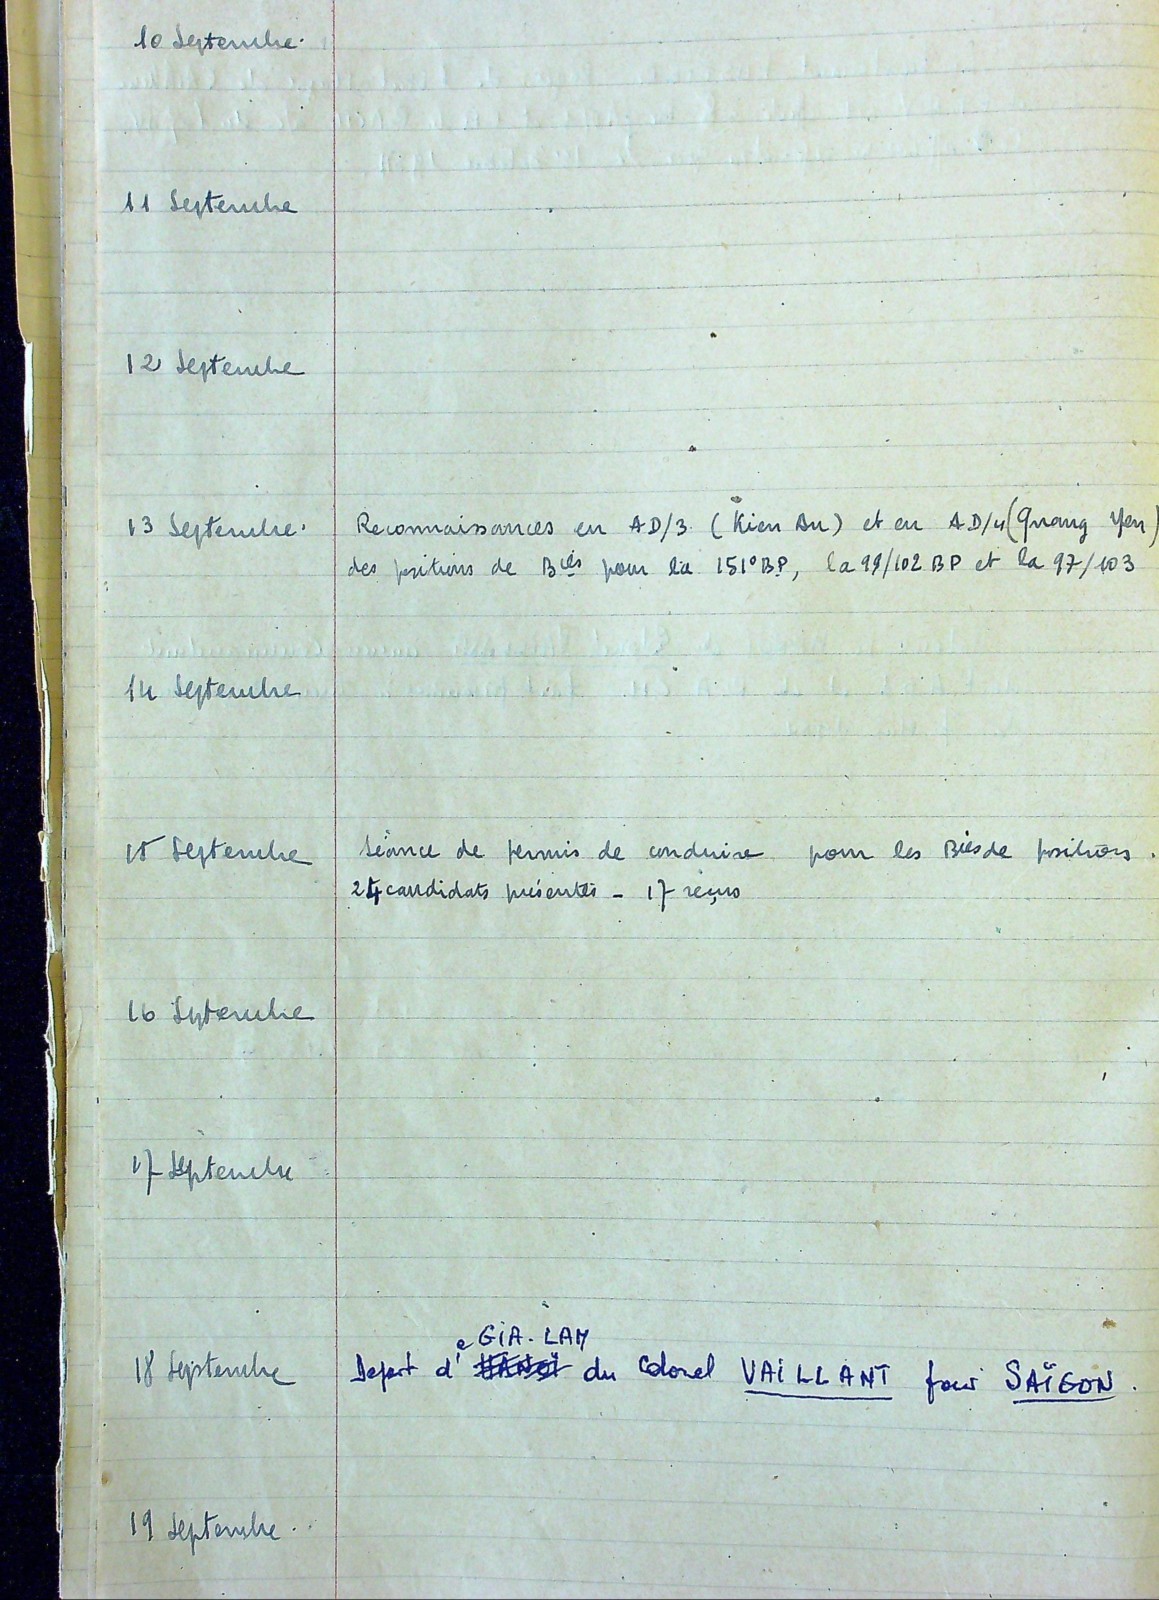 10 Septembre.
11 Septembre
12 Septembre
13 Septembre. Reconnaissances en AD/3 (Kien An) et en AD/4 (Quang Yen)
des positions de Bies pour la 151° BP, la 99/102 BP et la 97/103
14 Septembre
15 Septembre Séance de permis de conduire pour les Bies de positions.
24 candidats présentés - 17 reçus
16 Septembre
17 Septembre
e GIA.LAM
18 Septembre Depart d' HANOÏ du Colonel VAILLANT pour SAÏGON.
19 Septembre.